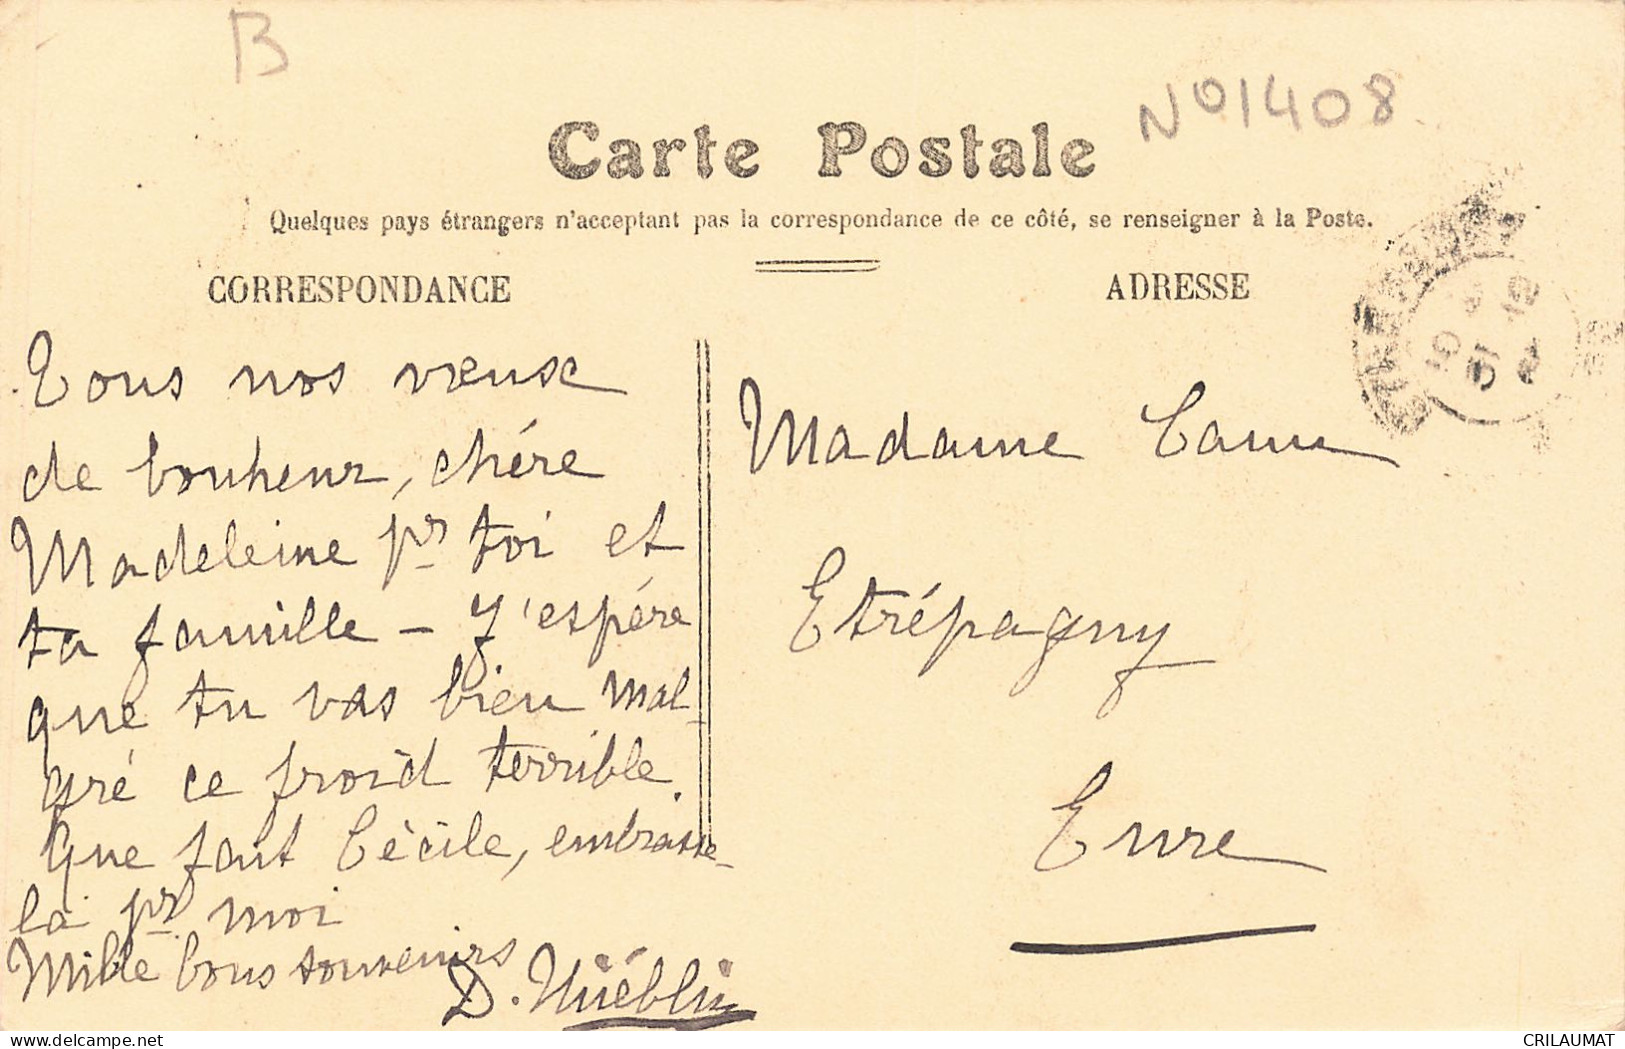 B
N° 1408
Carte Postale
Quelques pays étrangers n'acceptant pas la correspondance de ce côté, se renseigner à la Poste.
CORRESPONDANCE
Tous nos vœux
de bonheur, chère
Madeleine pr toi et
ta famille - J'espère
que tu vas bien mal-
gré ce froid terrible.
Que fait Cécile, embrasse-
la pr moi
Mille bons souvenirs
D.
ADRESSE
Madame
Etrépagny
Eure
delcampe.net
CRILAUMAT